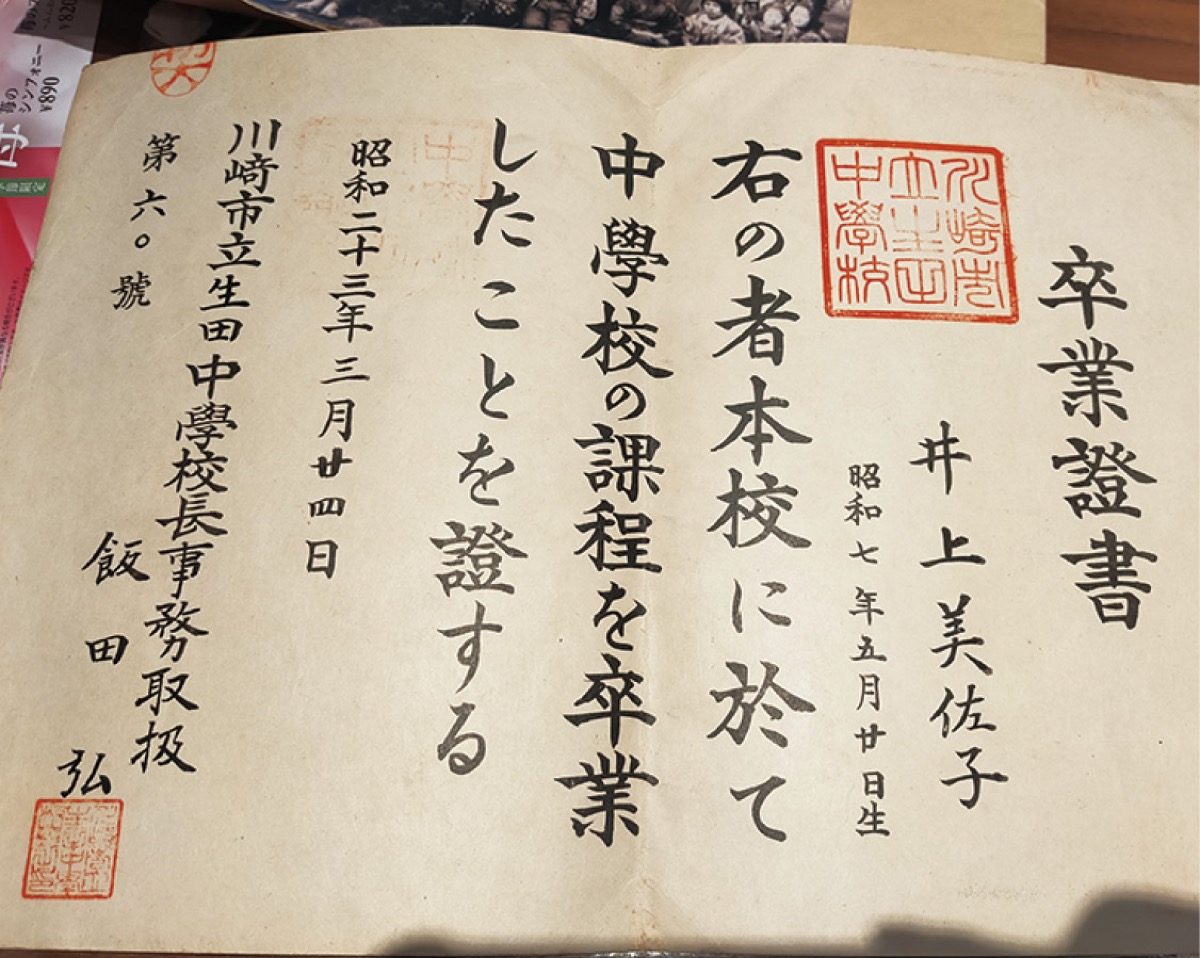 卒業證書
井上美佐子
昭和七年五月廿日生
川崎市
立生田
中學校
右の者本校に於て
中學校の課程を卒業
したことを證する
昭和二十三年三月廿四日
川﨑市立生田中學校長事務取扱
飯田弘
第六〇號
海の
シンフォニー
¥890
¥820